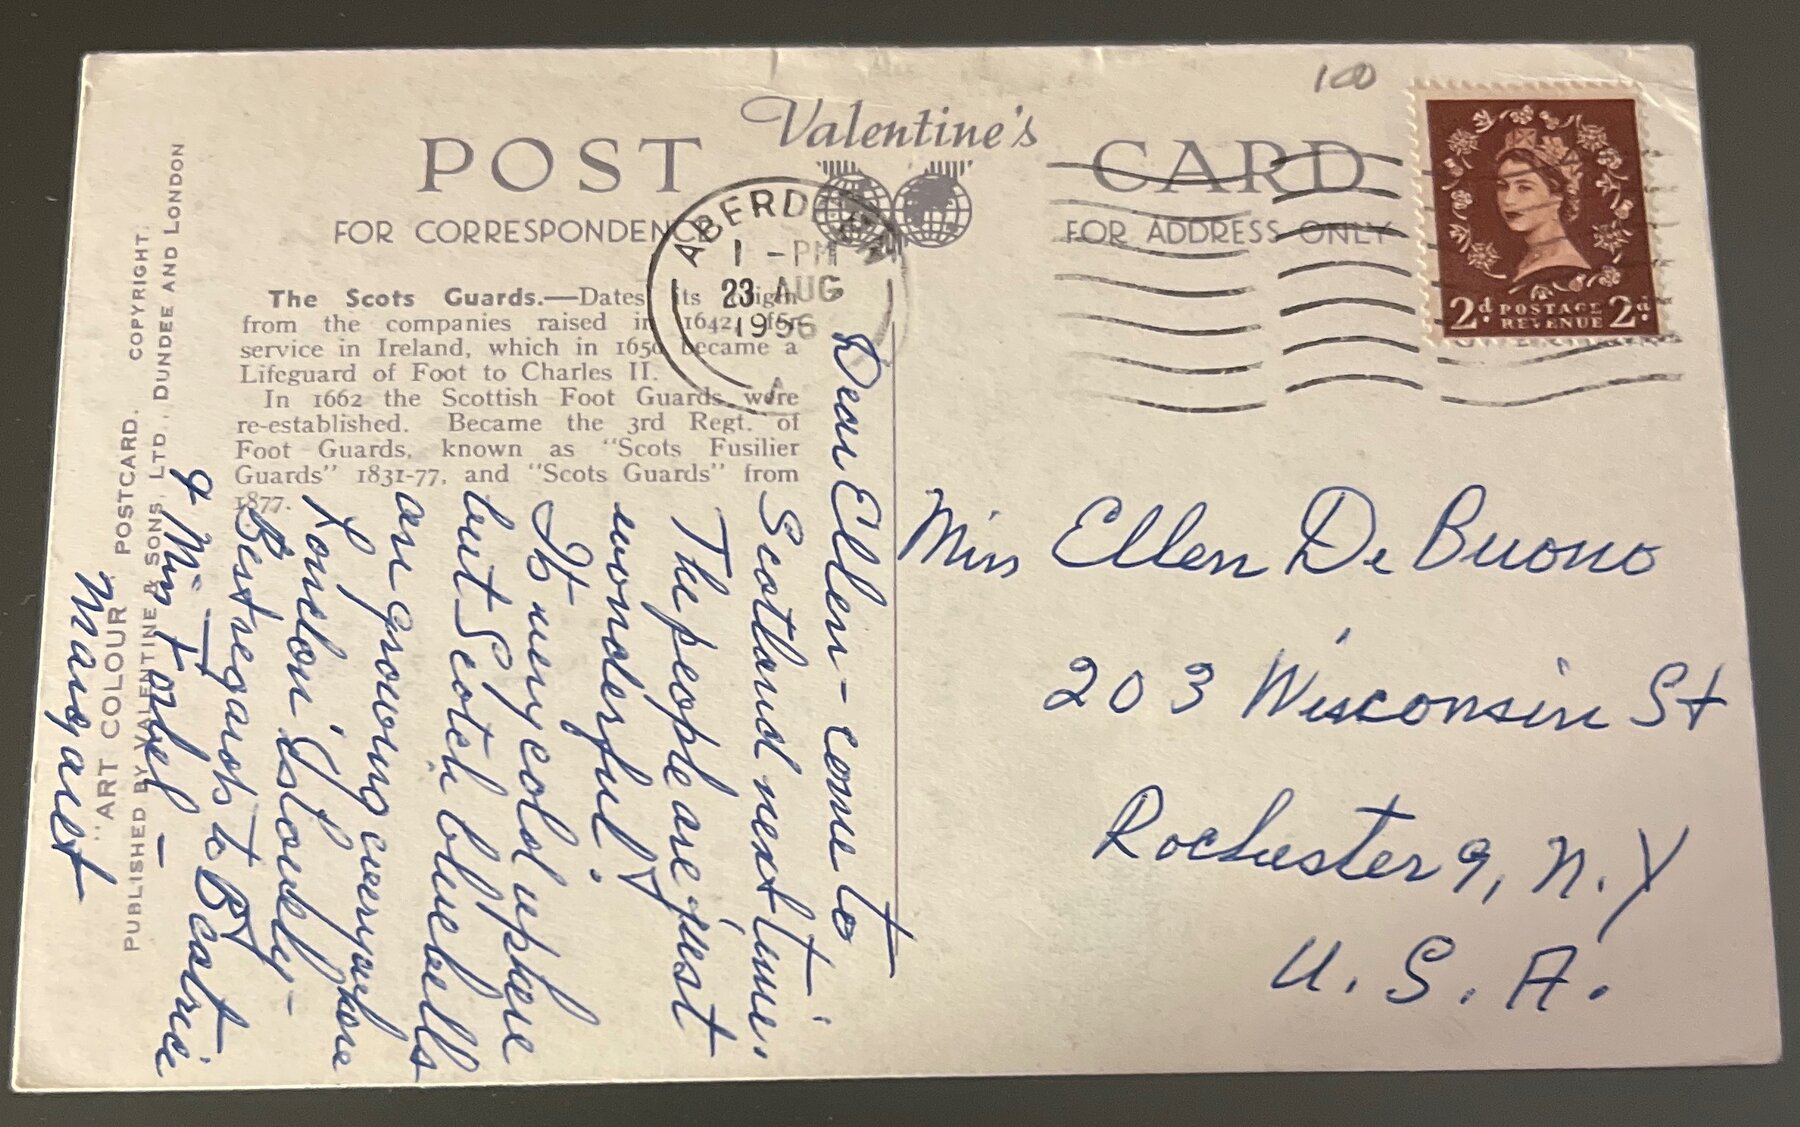 100
Valentine's
POST CARD
FOR CORRESPONDENCE
FOR ADDRESS ONLY
ABERDEEN
1 - PM
23 AUG
1956
A
2d POSTAGE REVENUE 2d
The Scots Guards.—Dates its origin
from the companies raised in 1642, for
service in Ireland, which in 1650 became a
Lifeguard of Foot to Charles II.
In 1662 the Scottish Foot Guards were
re-established. Became the 3rd Regt. of
Foot Guards, known as "Scots Fusilier
Guards" 1831-77, and "Scots Guards" from
1877.
"ART COLOUR" POSTCARD. COPYRIGHT.
PUBLISHED BY VALENTINE & SONS, LTD., DUNDEE AND LONDON
Dear Ellen - come to
Scotland next time.
The people are just
wonderful!
It very cold up here
but Scotch bluebells
are growing everywhere
London is lovely -
Best regards to Beatrice
& Miss -
Margaret
Miss Ellen De Buono
203 Wisconsin St
Rochester 9, N.Y
U.S.A.